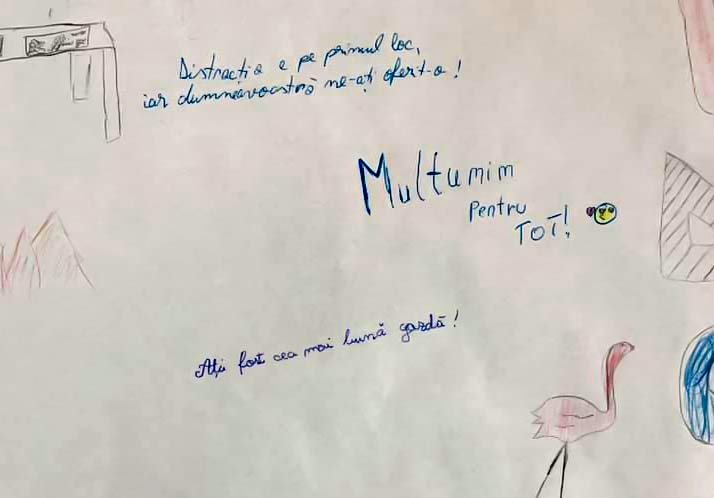 Distracția e pe primul loc,
iar dumneavoastră ne-ați oferit-o!
Multumim
Pentru
TOT!
Ați fost cea mai bună gazdă!